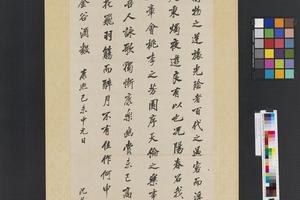 物之逆旅光陰者百代之過客而浮
秉燭夜遊良有以也況陽春召我
章會桃李之芳園序天倫之樂事
吾人詠歌獨慚康樂幽賞未已高
花飛羽觴而醉月不有佳作何申
金谷酒數 康熙己未中元日 沈